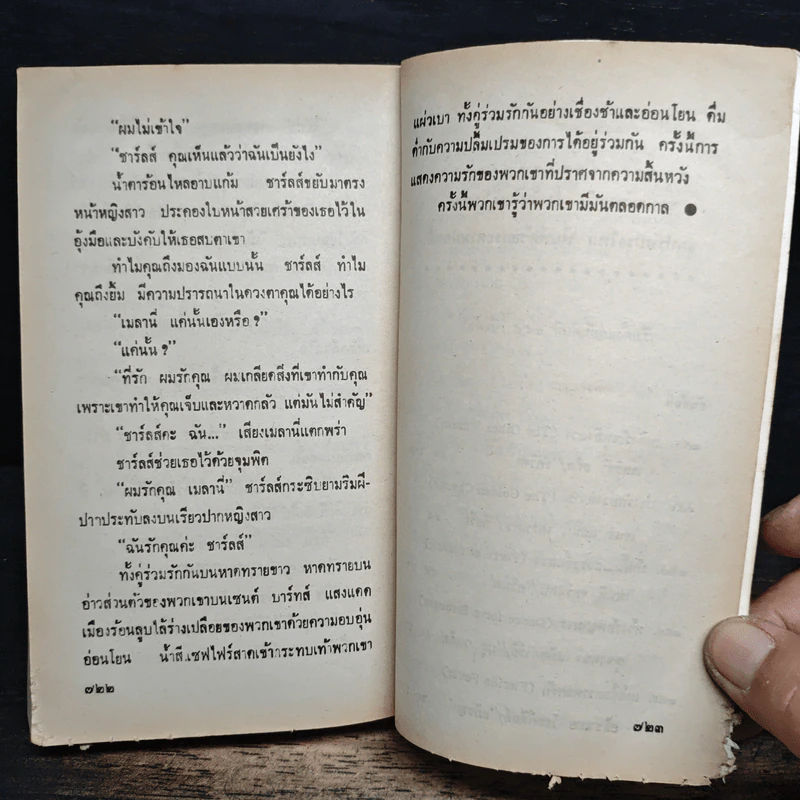 “ผมไม่เข้าใจ”
“ชาร์ลส์ คุณเห็นแล้วว่าฉันเป็นยังไง”
น้ำตาร้อนไหลอาบแก้ม ชาร์ลส์ขยับมาตรง
หน้าหญิงสาว ประคองใบหน้าสวยเศร้าของเธอไว้ใน
อุ้งมือและบังคับให้เธอสบตาเขา
ทำไมคุณถึงมองฉันแบบนั้น ชาร์ลส์ ทำไม
คุณถึงยิ้ม มีความปรารถนาในดวงตาคุณได้อย่างไร
“เมลานี่ แค่นั้นเองหรือ ?”
“แค่นั้น ?”
“ที่รัก ผมรักคุณ ผมเกลียดสิ่งที่เขาทำกับคุณ
เพราะเขาทำให้คุณเจ็บและหวาดกลัว แต่มันไม่สำคัญ”
“ชาร์ลส์คะ ฉัน...” เสียงเมลานี่แตกพร่า
ชาร์ลส์ช่วยเธอไว้ด้วยจุมพิต
“ผมรักคุณ เมลานี่” ชาร์ลส์กระซิบยามริมฝี-
ปากประทับลงบนเรียวปากหญิงสาว
“ฉันรักคุณค่ะ ชาร์ลส์”
ทั้งคู่ร่วมรักกันบนหาดทรายขาว หาดทรายบน
อ่าวส่วนตัวของพวกเขาบนเซนต์ บาร์ทส์ แสงแดด
เมืองร้อนลูบไล้ร่างเปลือยของพวกเขาด้วยความอบอุ่น
อ่อนโยน น้ำสีแซฟไฟร์สาดเข้ากระทบเท้าพวกเขา
๗๒๒
แผ่วเบา ทั้งคู่ร่วมรักกันอย่างเชื่องช้าและอ่อนโยน ดื่ม
ด่ำกับความปลื้มเปรมของการได้อยู่ร่วมกัน ครั้งนี้การ
แสดงความรักของพวกเขาที่ปราศจากความสิ้นหวัง
ครั้งนี้พวกเขารู้ว่าพวกเขามีมันตลอดกาล ●
๗๒๓